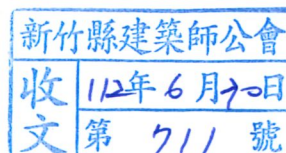 新竹縣建築師公會
收文
112年6月20日
第 711 號